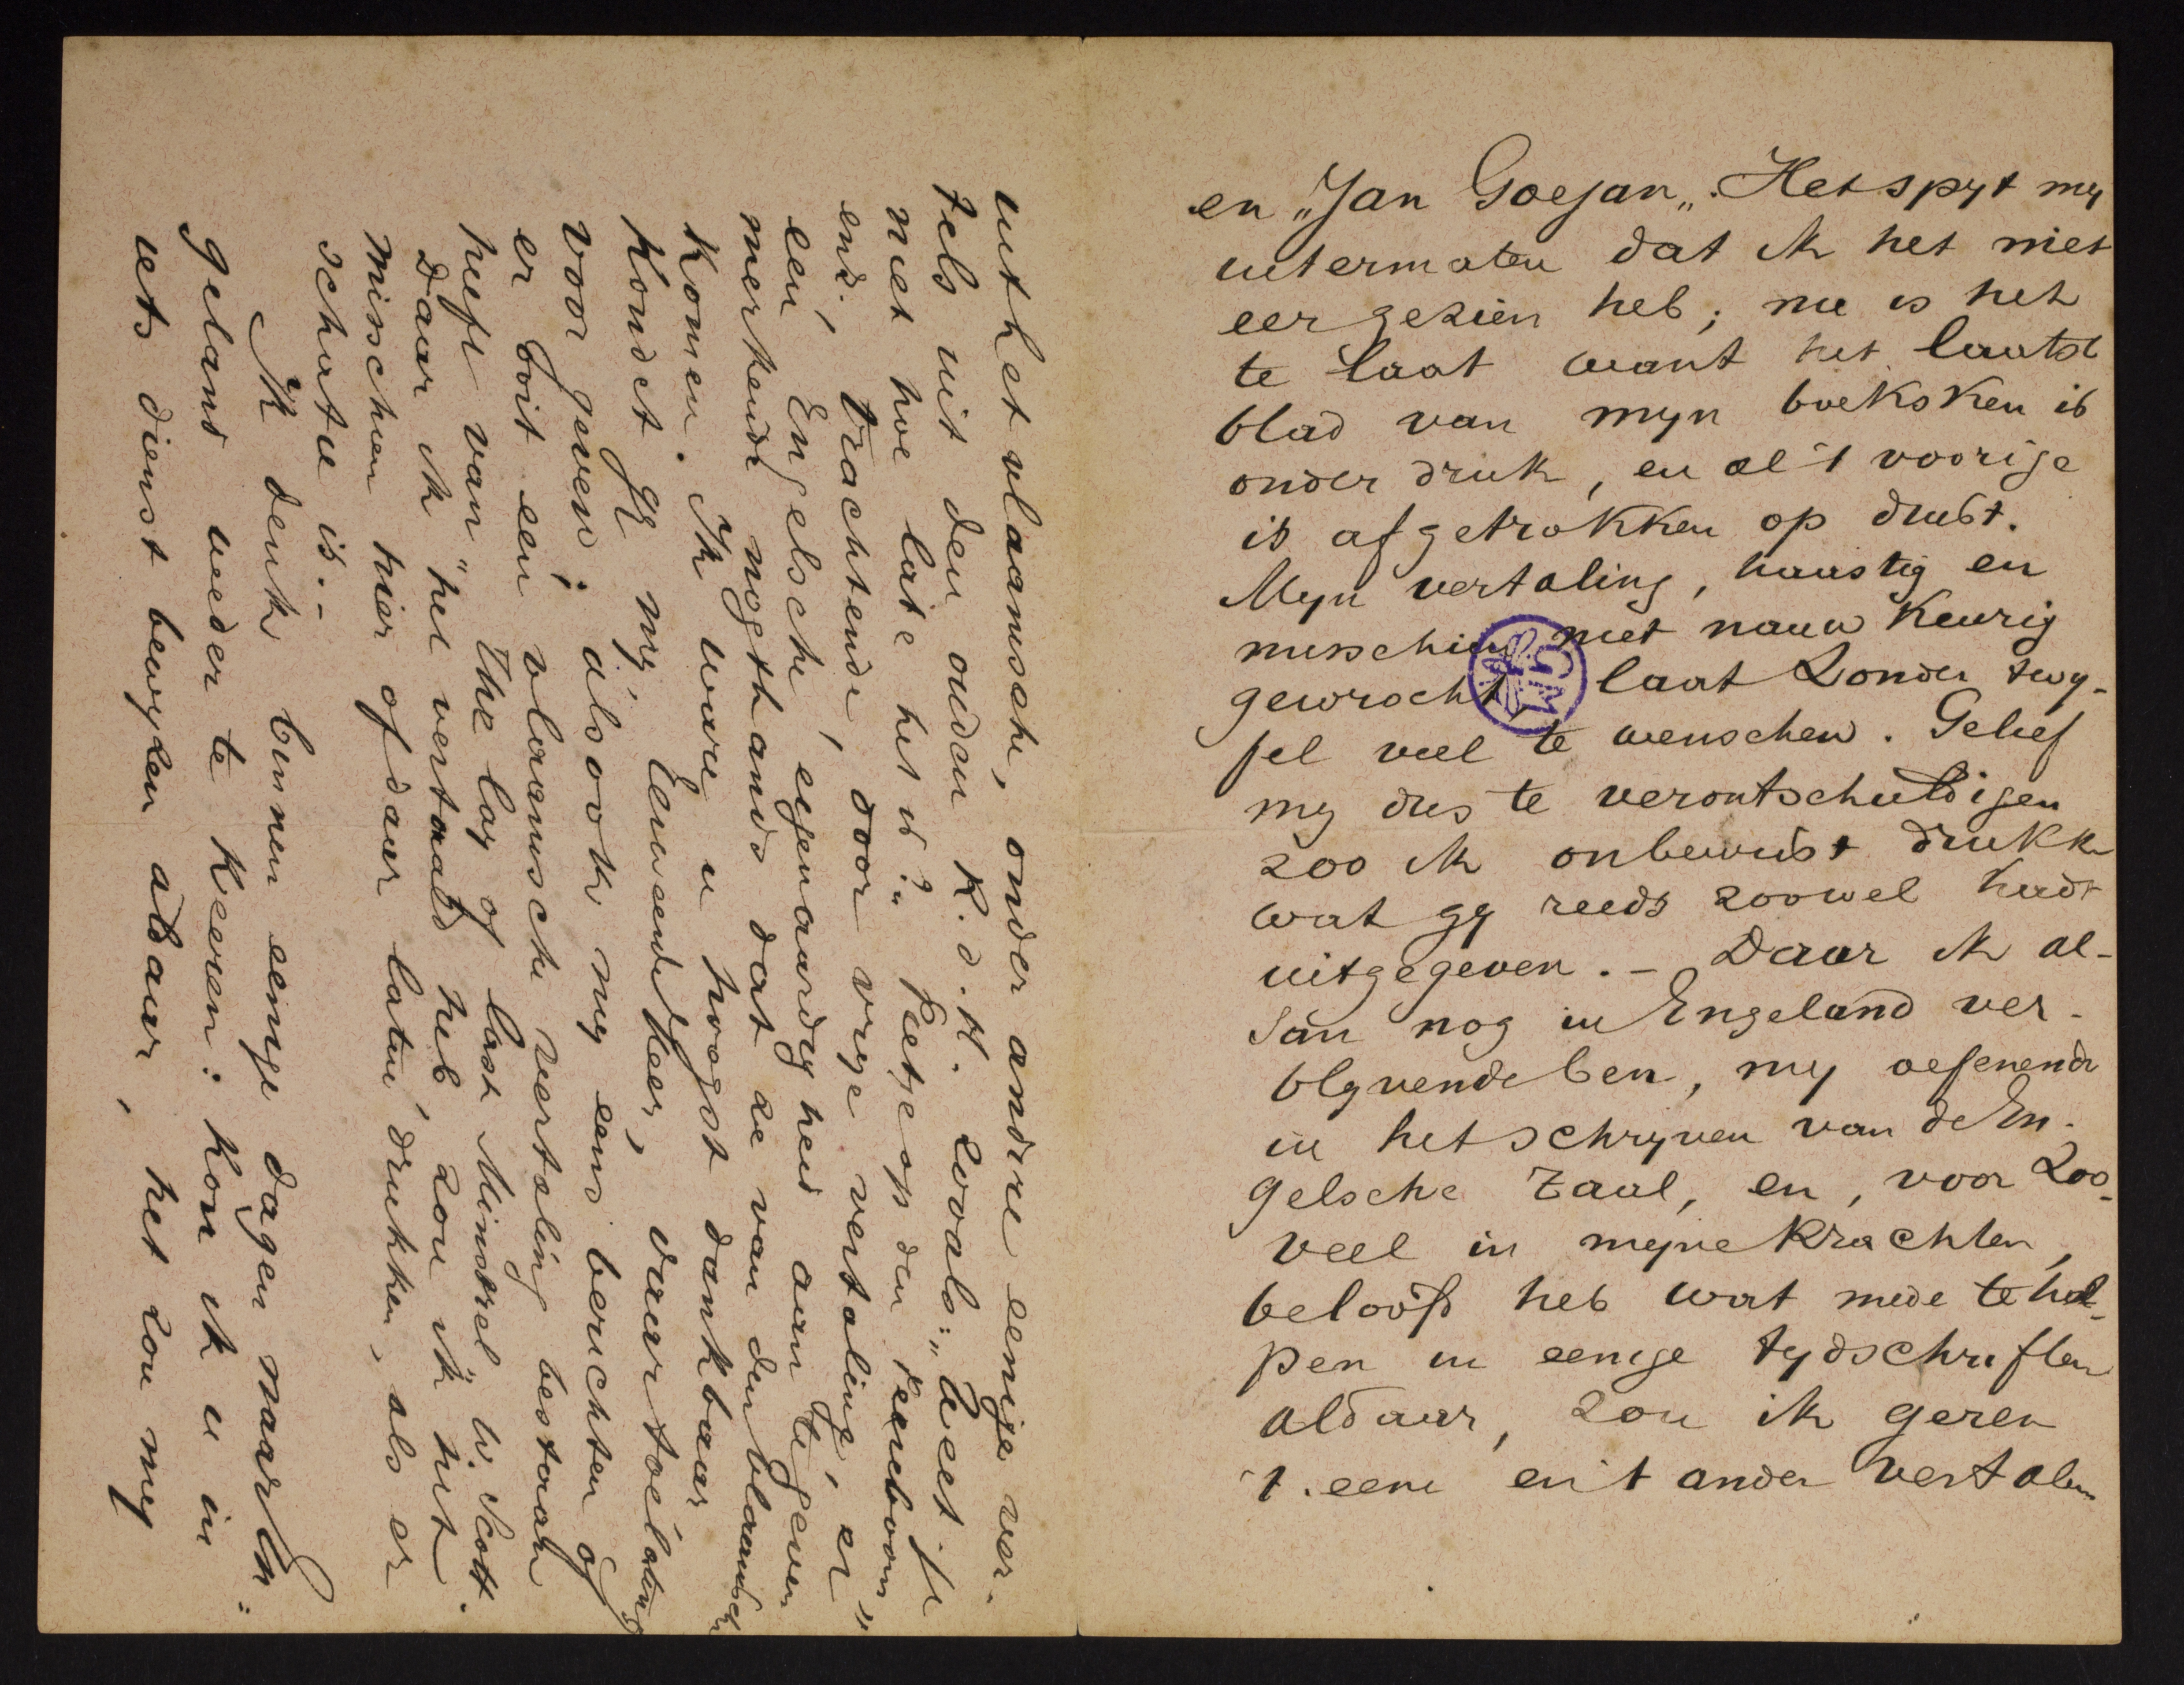 en „Jan Goejan„. Het spyt my
utermaten dat ik het niet
eer gezien heb; nu is het
te laat want het laatst
blad van myn boeksken is
onder druk, en al 't voorige
is afgetrokken op drukt.
Myn vertaling, haastig en
misschien niet nauwkeurig
gewrocht, laat zonder twy-
fel veel te wenschen. Gelief
my dus te verontschuldigen
zoo ik onbewust drukke
wat gy reeds zoowel hadt
uitgegeven. - Daar ik al-
dan nog in Engeland ver-
blyvende ben, my oefenende
in het schryven van de En-
gelsche taal, en, voor zoo-
veel in myne krachten,
beloofd heb wat mede te hel-
pen in eenige tydschriften
aldaar, zou ik geren
't eene en 't ander vertalen
uit het vlaamsche, onder andere eenige ver-
tels uit den ouden R.d.H. zooals: „Weet je
niet hoe late het is?„ Pietje op den Peereboom"
enz. Trachtende, door vrye vertaling, er
een, Engelsche, eigenaardigheid aan te geven
merkende nogthands dat ze van den vlaamschen
komen. Ik ware u hoogst dankbaar
kondet gy my, Eerweerde Heer, daartoe lating
voor geven; alsook my eens berichten of
er ooit een vlaamsche vertaling bestaan
heeft van "The lay of last Minstrel" W. Scott.
Daar ik "het vertaald heb zou ik" het
misschien hier of daar laten drukken, als er
schatie is.-
Ik denk binnen eenige dagen naar En-
geland weder te keeren: kon ik u in
iets dienst bewyzen aldaar, het zou my